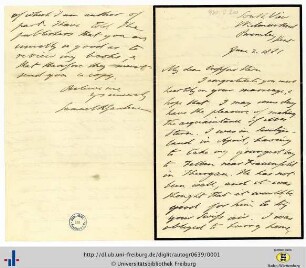 of which I am author of
part. I have told the
publishers that you are
usually so good as to
review my books, &
that therefore they must
send you a copy.
Believe me
yours sincerely
South View
Widmore Road
Bromley,
Kent
June 2. 1881
My dear Professor
I congratulate you most
heartily on your marriage, &
hope that I may some day
have the pleasure of making
the acquaintance of
I was in
in April, having
to take my youngest boy
to near Frauenfeld
in Thurgau. He has not
been well, and it was
thought that it would be
good for him to try
your Swiss air. I was
obliged to hurry home,
http://dl.ub.uni-freiburg.de/diglit/autogr0639/0001
Universitätsbibliothek Freiburg